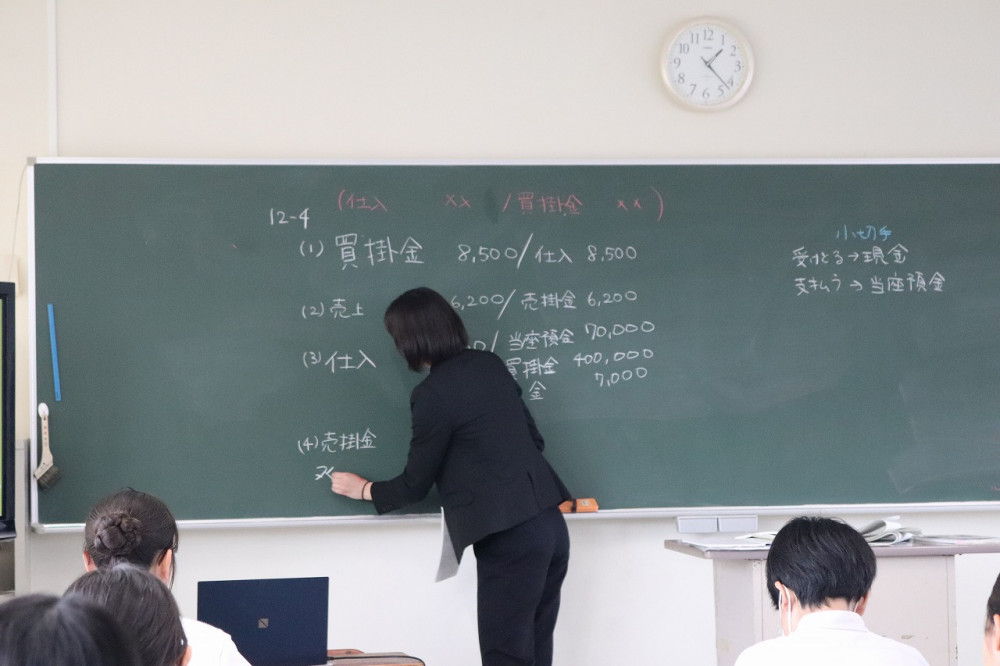 (仕入 xx / 買掛金 xx)
12-4
(1) 買掛金 8,500 / 仕入 8,500
(2) 売上 6,200 / 売掛金 6,200
(3) 仕入 / 当座預金 70,000
買掛金 400,000
金 7,000
(4) 売掛金
小切手
受けとる→現金
支払う→当座預金
12
1
2
3
5
6
7
8
9
10
11